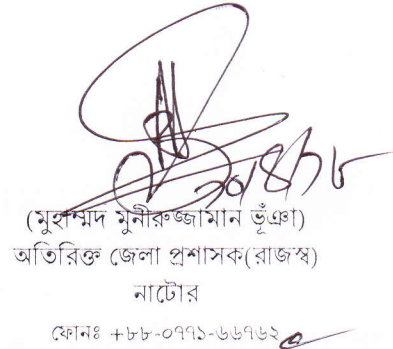 (মুহাম্মদ মুনীরুজ্জামান ভূঁঞা)
অতিরিক্ত জেলা প্রশাসক(রাজস্ব)
নাটোর
ফোনঃ +৮৮-০৭৭১-৬৬৭৬২